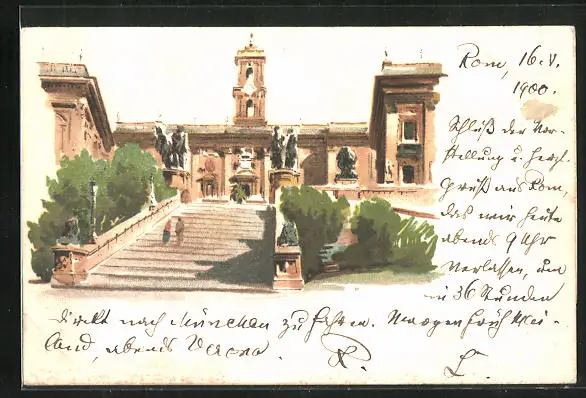 Rom, 16. V.
1900.
Schluß der Vor-
stellung u. herzl.
Gruß aus Rom,
das wir heute
abends 9 Uhr
verlassen, um
in 36 Stunden
direkt nach München zu fahren. Morgen früh Mai-
land, abends Verona.
R. L.